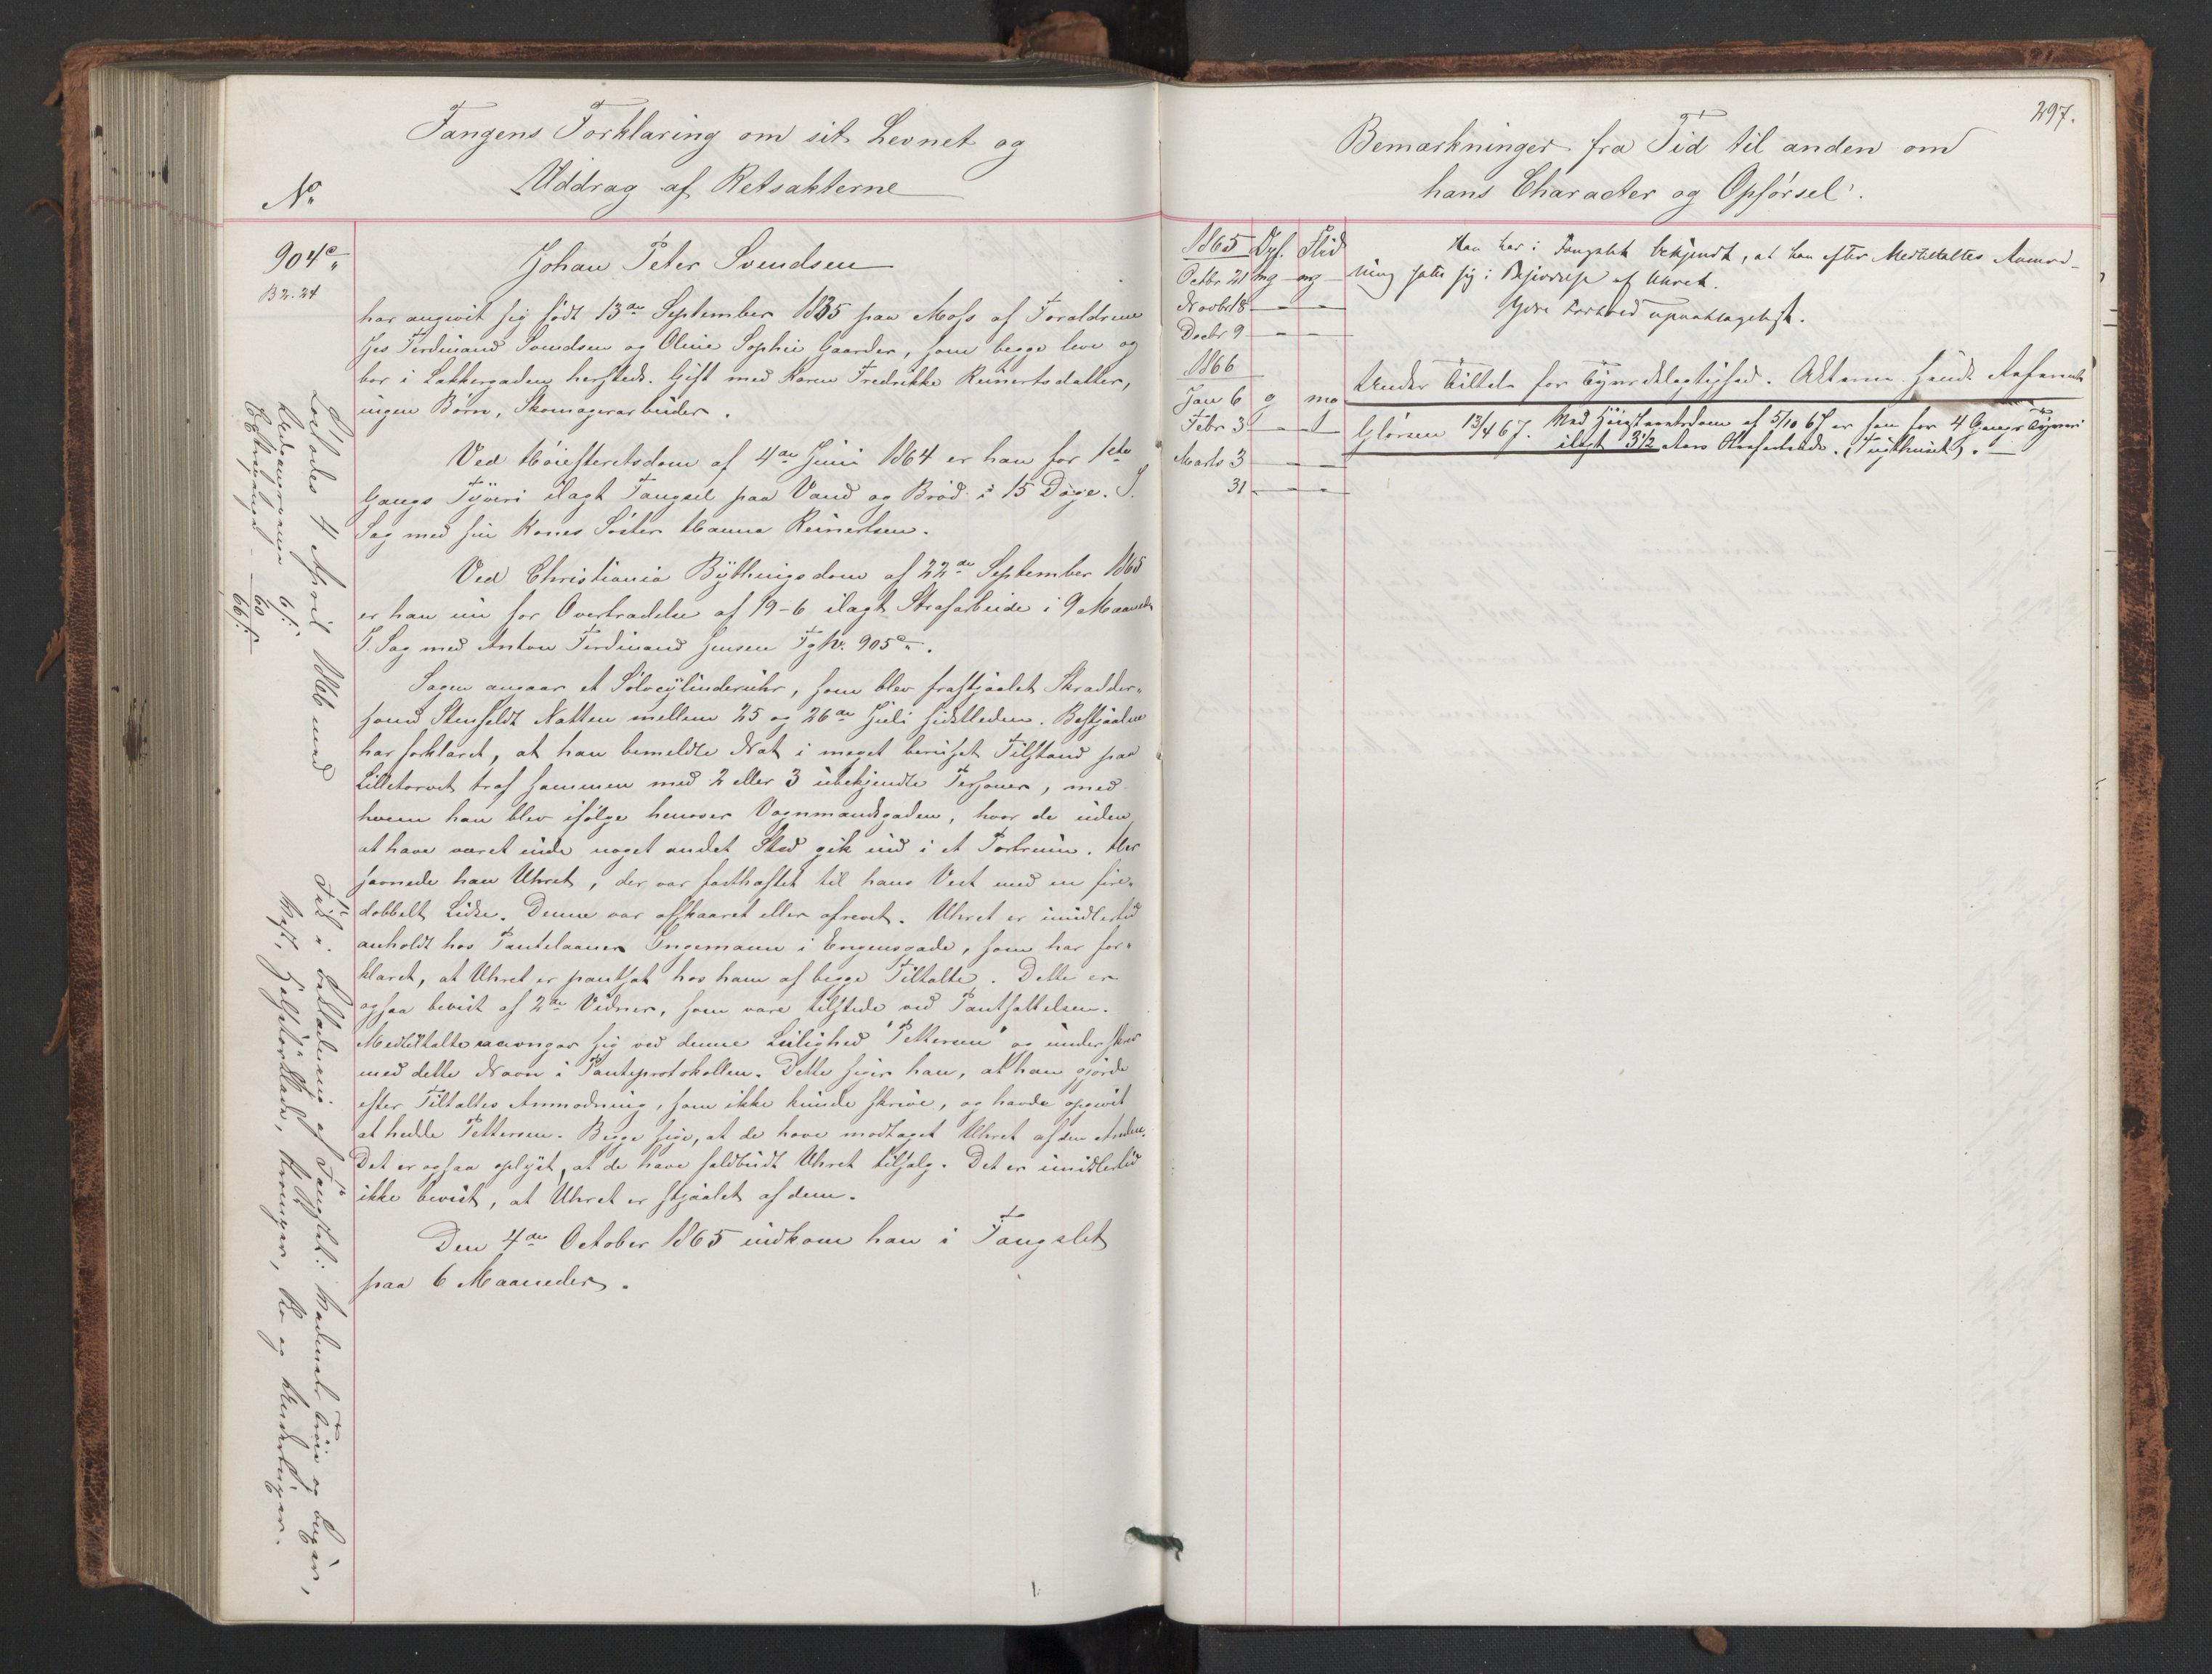 Fangens Forklaring om sit Levnet og
Uddrag af Retsakterne
No
904c
B 2. 24
Johan Peter Svendsen
har angivet sig født 13de September 1835 paa Moss af Forældrene
Ferdinand Svendsen og Oline Sophie Gaarder, som begge leve og
bor i Lakkergaden hersteds. Gift med Karen Fredrikke Reinertsdatter,
ingen Børn, Skomagerarbeider.
Ved Høiesteretsdom af 4de Juni 1864 er han for 1ste
Gangs Tyveri ilagt Fængsel paa Vand og Brød i 15 Døge. I
Sag med sin Kones Søster Hanna Reinertsen.
Ved Christiania Bythingsdom af 22de September 1865
er han nu for Overtrædelse af 19-6 ilagt Strafarbeide i 9 Maaneder
I Sag med Anton Ferdinand Jensen Fg No. 905c.
Sagen angaar et Sølvcylinderuhr, som blev frastjaalet Skrædder-
svend Stenfeldt Natten mellem 25 og 26de Juli sidstleden. Bestjaalne
har forklaret, at han bemeldte Nat i meget beruset Tilstand paa
Lilletorvet traf sammen med 2 eller 3 ubekjendte Personer, med
hvem han blev ifølge henover Vognmandsgaden, hvor de uden
at have været inde noget andet Sted gik ind i et Portrum. Her
savnede han Uhret, der var fasthæftet til hans Vest med en fire-
dobbelt Lidse. Denne var afskaaret eller afrevet. Uhret er imidlertid
anholdt hos Pantelaaner Ingemann i Engensgade, som har for-
klaret, at Uhret er pantsat hos ham af begge Tiltalte. Dette er
ogsaa bevist af 2de Vidner, som vare tilstede ved Pantsættelsen.
Medtiltalte sig ved denne Leilighed "Pettersen" og underskrev
med dette Navn i Panteprotokollen. Dette siger han, at han gjorde
efter Tiltaltes Anmodning, som ikke kunde skrive, og havde opgivet
at hedde Pettersen. Begge sige, at de have modtaget Uhret af den Anden.
Det er ogsaa oplyst, at de have faldbudt Uhret tilsalg. Det er imidlertid
ikke bevist, at Uhret er stjaalet af dem.
Den 4de October 1865 indkom han i Fængslet
paa 6 Maaneder.
Løslodes 4 April 1866 med
6 ß
60 ß
66 ß
Fik i Udlaaning af Fængslet: trøie og buxer,
Vest, Skjorte, og
1
297.
Bemærkninger fra Tid til anden om
hans Character og Opførsel.
1865 Opf. Flid
Octbr 21 mg mg
Novbr 18 — —
Decbr 9 — —
1866
Jan 6 g mo
Febr 3 — —
Marts 3 — —
31 — —
Han har i Fængslet bekjendt, at han efter Medtiltaltes Anmod-
ning satte sig i Besiddelse af Uhret.
Ydre Forhold upaaklageligt.
Under Tiltale for Tyvsdelagtighed. Akterne sendt
13/4 67. Med Høiesteretsdom af 5/10 67 er han for 4 Gangs Tyveri
ilagt 3 1/2 Aars Strafarbeide. (Tugthuset).